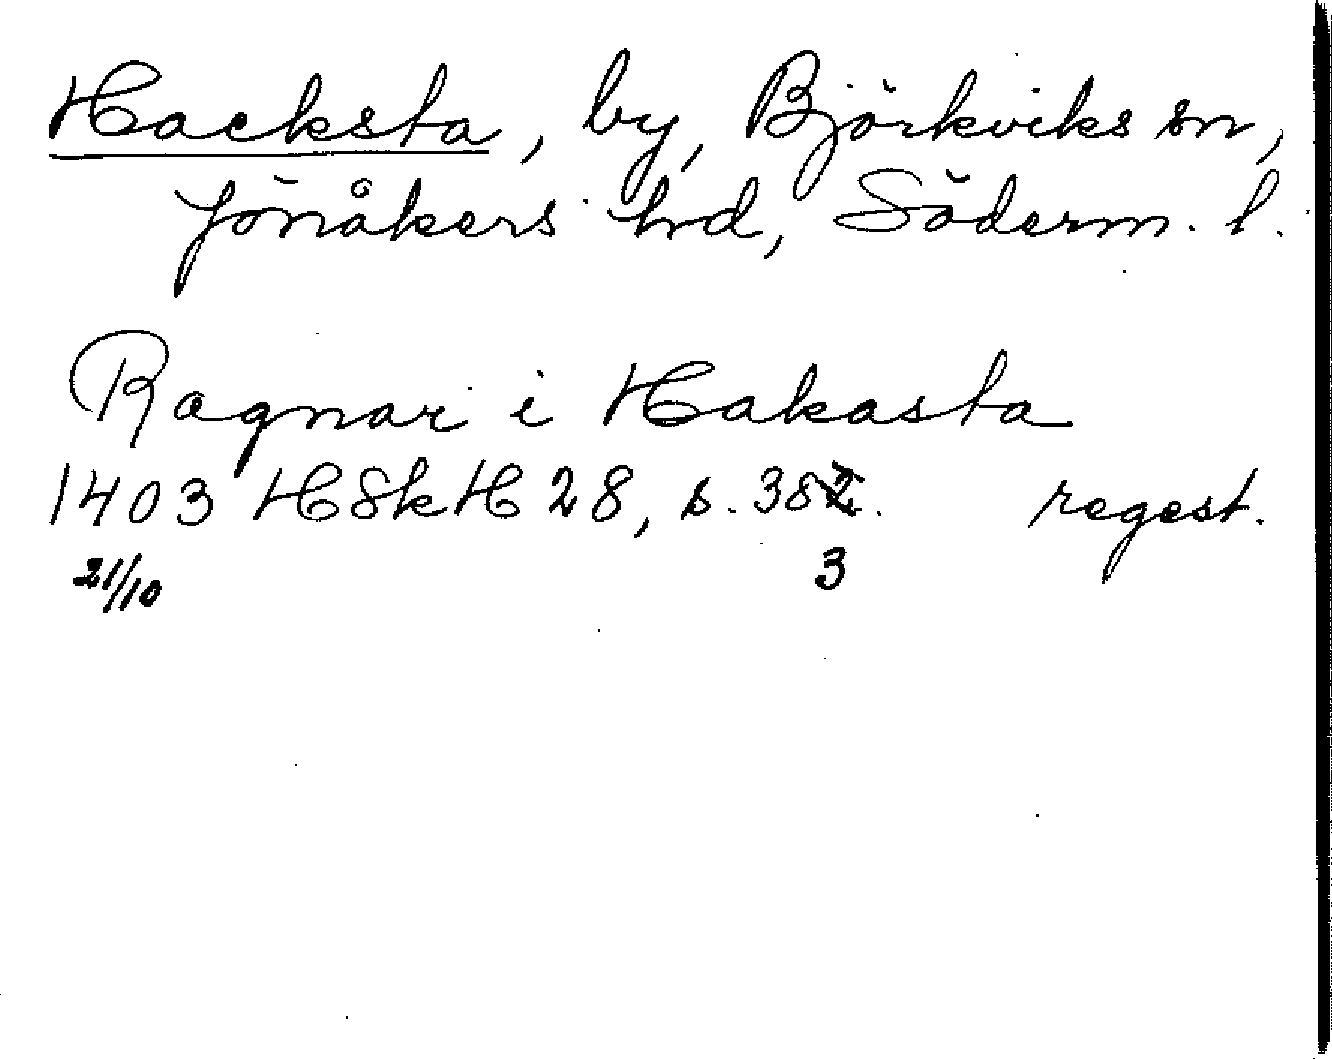 Hacksta, by, Björkviks sn,
Jönåkers hd, Söderm. l.
Ragnar i Hakasta
1403 HSkH 28, s. 382. regest.
21/10 3